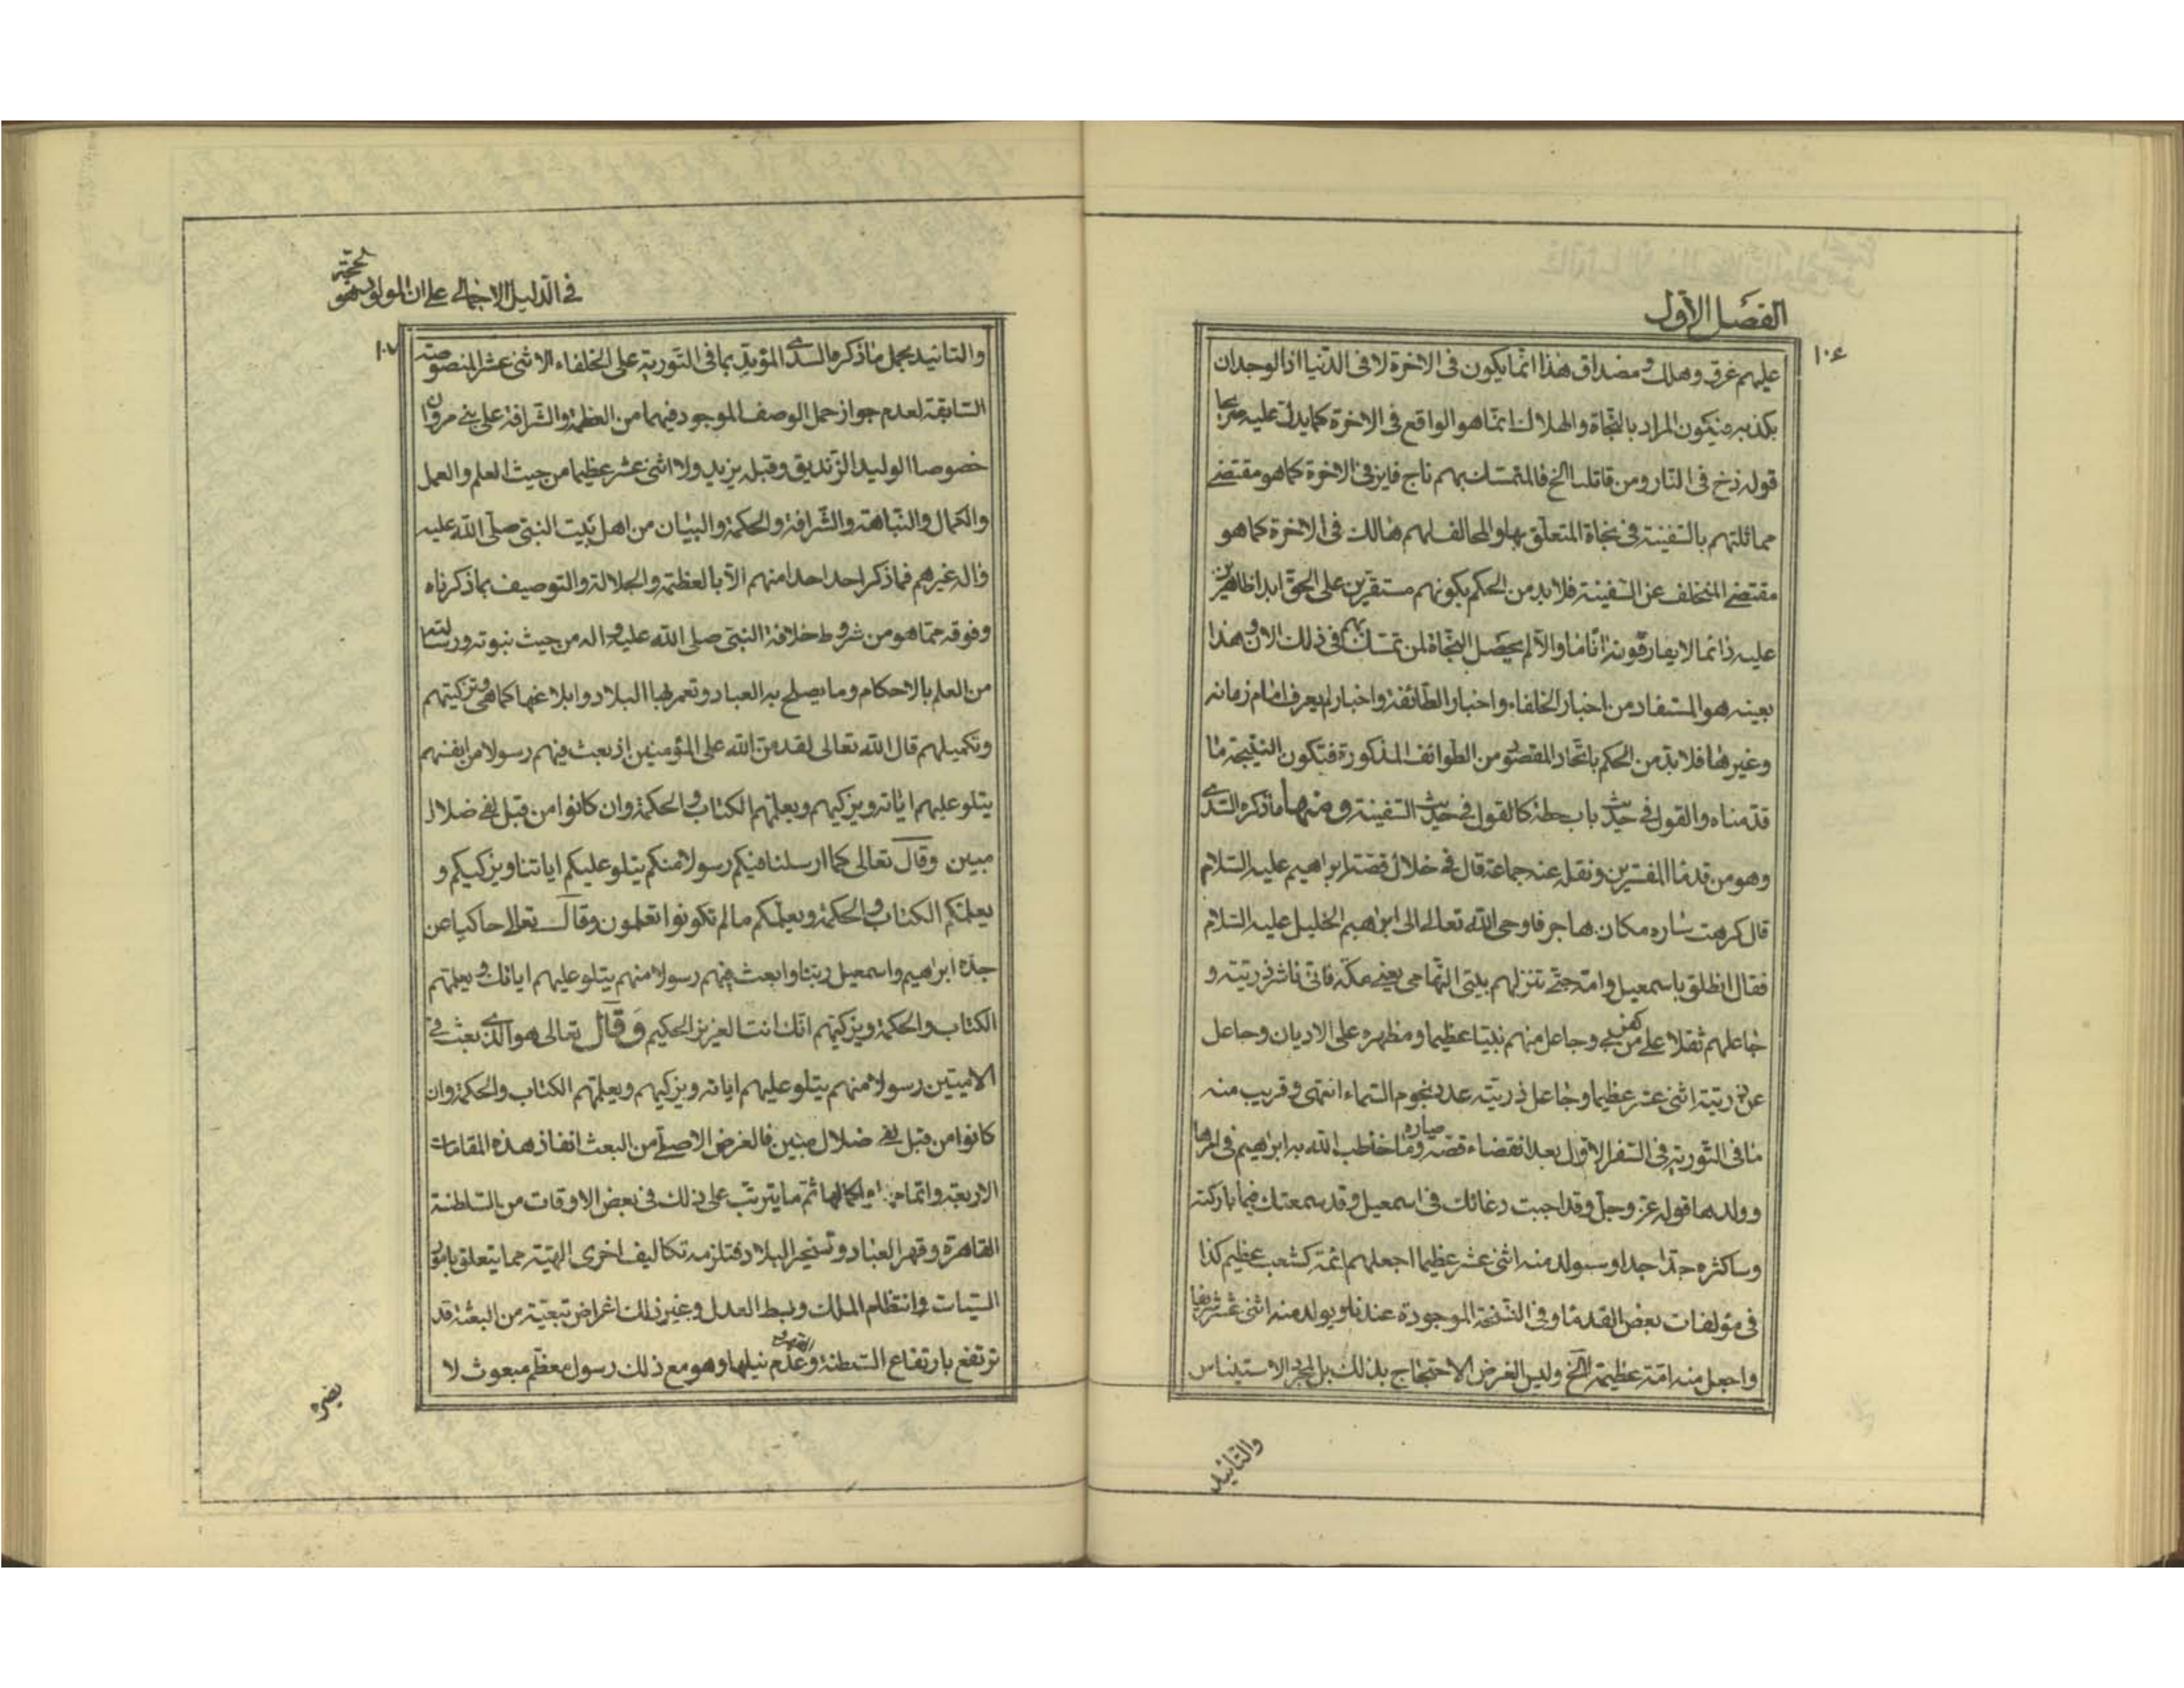 الفصل الأول
١٠٦
عليهم غرق وهلك ومصداق هذا انما يكون فى الاخرة لا فى الدنيا اذ الوجدان
يكذبه فيكون المراد بالنجاة والهلاك انما هو الواقع فى الاخرة كما يدل عليه صريحا
قوله زخ فى النار ومن قاتلنا الخ فالمتمسك بهم ناج فايز فى الاخرة كما هو مقتضى
مماثلتهم بالسفينة فى نجاة المتعلق بها والمخالف لهم هالك فى الاخرة كما هو
مقتضى المتخلف عن السفينة فلابد من الحكم بكونهم مستقرين على الحق ابدا ظاهرين
عليه دائما لا يفارقونه انا ما والا لم يحصل النجاة لمن تمسك بهم فى ذلك الان وهذا
بعينه هو المستفاد من اخبار الخلفاء واخبار الطائفة واخبار لم يعرف امام زمانه
وغيرها فلابد من الحكم باتحاد المقصود من الطوائف المذكورة فتكون النتيجة ما
قدمناه والقول فى حديث باب حطة كالقول فى حديث السفينة ومنها ما ذكره السدى
وهو من قدماء المفسرين ونقله عنه جماعة قال فى خلال قصة ابراهيم عليه السلام
قال كرهت ساره مكان هاجر فاوحى الله تعالى الى ابراهيم الخليل عليه السلام
فقال انطلق باسمعيل وامه حتى تنزلهم بيتى التهامى يعنى مكة فانى ناشر ذريته و
جاعلهم ثقلا على من كفر بى وجاعل منهم نبيا عظيما ومظهره على الاديان وجاعل
من ذريته اثنى عشر عظيما وجاعل ذريته عدد نجوم السماء انتهى وقريب منه
ما فى التورية فى السفر الاول بعد انقضاء قصة ساره وما خاطب الله به ابراهيم فى امرها
وولدها قوله عز وجل وقد اجبت دعائك فى اسمعيل وقد سمعتك فيما باركته
وساكثره جدا جدا وسيولد منه اثنى عشر عظيما اجعلهم ائمة كشعب عظيم كذا
فى مؤلفات بعض القدماء وفى النسخة الموجودة عندنا ويولد منه اثنى عشر شريفا
واجعل منه امة عظيمة الخ وليس الغرض الاحتجاج بذلك بل لمجرد الاستيناس
والتائيد
فى الدليل الاجمالى على ان المولود هو الحجة
١٠٧
والتائيد بحمل ما ذكره السدى المؤيد بما فى التورية على الخلفاء الاثنى عشر المنصوصة
السابقة لعدم جواز حمل الوصف الموجود فيهما من العظمة والشرافة على بنى مروان
خصوصا الوليد الزنديق وقبله يزيد ولا اثنى عشر عظيما من حيث العلم والعمل
والكمال والنباهة والشرافة والحكمة والبيان من اهل بيت النبى صلى الله عليه
واله غيرهم فما ذكر احد احدا منهم الا بالعظمة والجلالة والتوصيف بما ذكرناه
وفوقه مما هو من شروط خلافة النبى صلى الله عليه واله من حيث نبوته ورسالته
من العلم بالاحكام وما يصلح به العباد وتعمر بها البلاد وابلاغها كما هى وتزكيتهم
وتكميلهم قال الله تعالى لقد من الله على المؤمنين اذ بعث فيهم رسولا من انفسهم
يتلو عليهم اياته ويزكيهم ويعلمهم الكتاب والحكمة وان كانوا من قبل لفى ضلال
مبين وقال تعالى كما ارسلنا فيكم رسولا منكم يتلو عليكم اياتنا ويزكيكم و
يعلمكم الكتاب والحكمة ويعلمكم ما لم تكونوا تعلمون وقال تعالى حاكيا عن
جده ابراهيم واسمعيل ربنا وابعث فيهم رسولا منهم يتلو عليهم اياتك ويعلمهم
الكتاب والحكمة ويزكيهم انك انت العزيز الحكيم وقال تعالى هو الذى بعث فى
الاميين رسولا منهم يتلو عليهم اياته ويزكيهم ويعلمهم الكتاب والحكمة وان
كانوا من قبل لفى ضلال مبين فالغرض الاصلى من البعث انفاذ هذه المقامات
الاربعة واتمامها واكمالها ثم ما يترتب على ذلك فى بعض الاوقات من السلطنة
القاهرة وقهر العباد وتسخير البلاد فتلزمه تكاليف اخرى الهية مما يتعلق بامور
السياسات وانتظام الملك وبسط العدل وغير ذلك اغراض تبعية من البعثة قد
ترتفع بارتفاع السلطنة وعدم نيلها وهو مع ذلك رسول معظم مبعوث لا
يضره